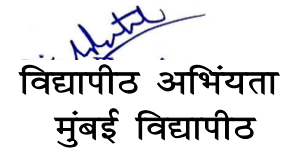 विद्यापीठ अभियंता
मुंबई विद्यापीठ